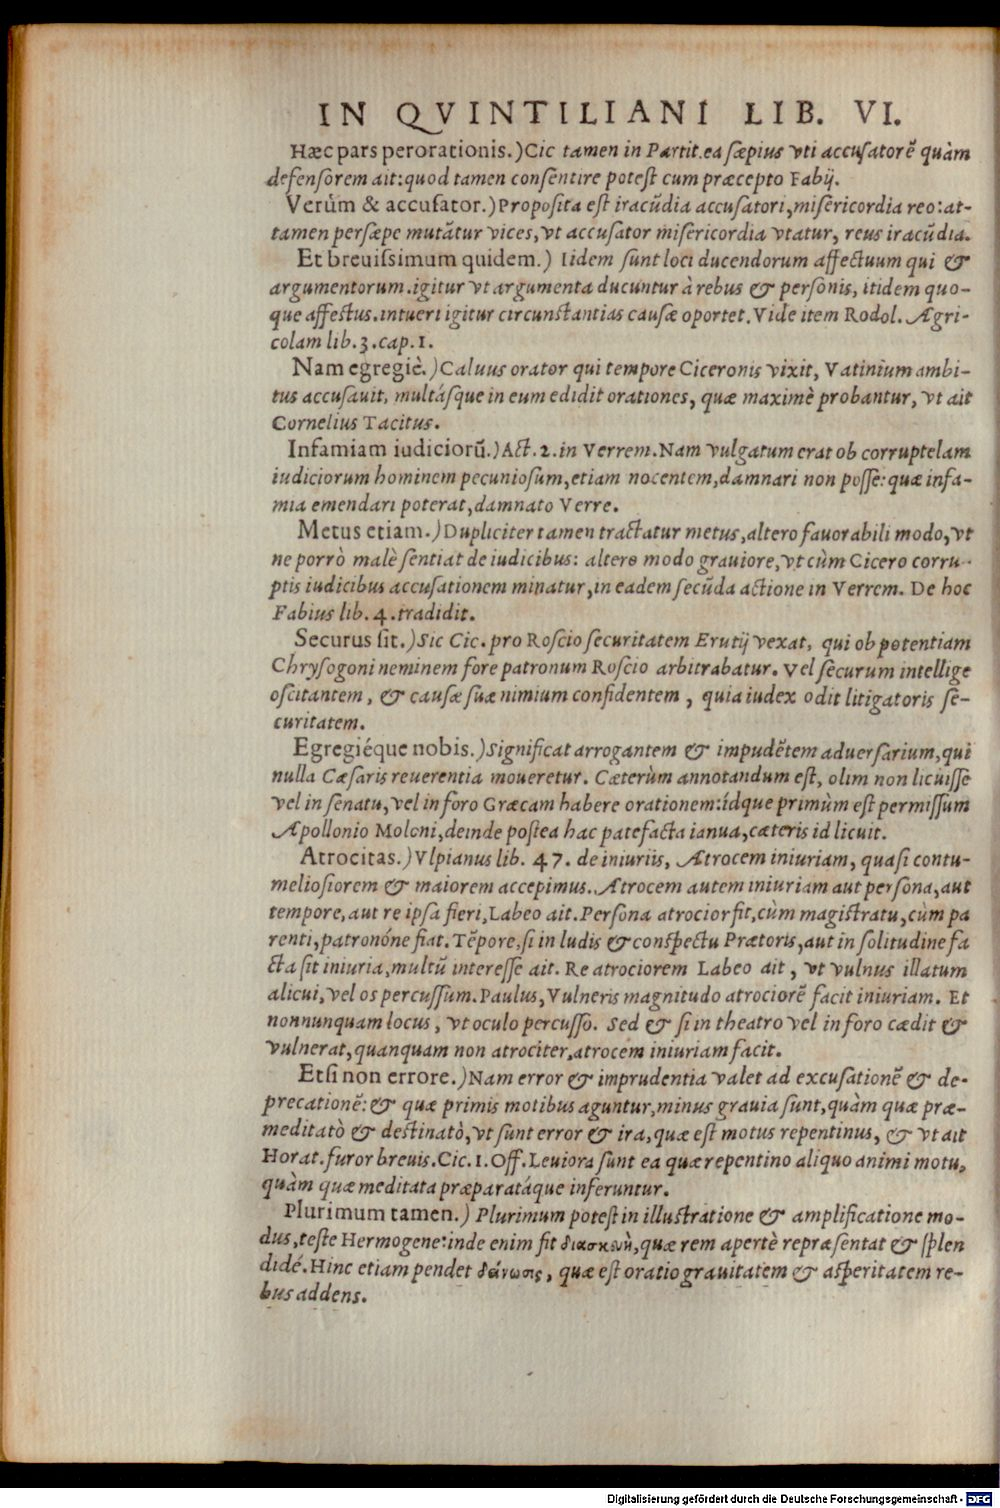 IN QVINTILIANI LIB. VI.
Hæc pars perorationis.) Cic tamen in Partit. ea sæpius vti accusatorē quàm
defensorem ait: quod tamen consentire potest cum præcepto Fabij.
Verùm & accusator.) Proposita est iracūdia accusatori, misericordia reo: at-
tamen persæpe mutātur vices, vt accusator misericordia vtatur, reus iracūdia.
Et breuissimum quidem.) Iidem sunt loci ducendorum affectuum qui &
argumentorum. igitur vt argumenta ducuntur à rebus & personis, itidem quo-
que affectus. intueri igitur circunstantias causæ oportet. Vide item Rodol. Agri-
colam lib. 3. cap. 1.
Nam egregiè.) Caluus orator qui tempore Ciceronis vixit, Vatinium ambi-
tus accusauit, multásque in eum edidit orationes, quæ maximè probantur, vt ait
Cornelius Tacitus.
Infamiam iudiciorū.) Act. 2. in Verrem. Nam vulgatum erat ob corruptelam
iudiciorum hominem pecuniosum, etiam nocentem, damnari non posse: quæ infa-
mia emendari poterat, damnato Verre.
Metus etiam.) Dupliciter tamen tractatur metus, altero fauorabili modo, vt
ne porrò malè sentiat de iudicibus: altero modo grauiore, vt cùm Cicero corru-
ptis iudicibus accusationem minatur, in eadem secūda actione in Verrem. De hoc
Fabius lib. 4. tradidit.
Securus sit.) Sic Cic. pro Roscio securitatem Erutij vexat, qui ob potentiam
Chrysogoni neminem fore patronum Roscio arbitrabatur. Vel securum intellige
oscitantem, & causæ suæ nimium confidentem, quia iudex odit litigatoris se-
curitatem.
Egregiéque nobis.) Significat arrogantem & impudētem aduersarium, qui
nulla Cæsaris reuerentia moueretur. Cæterùm annotandum est, olim non licuisse
vel in senatu, vel in foro Græcam habere orationem: ídque primùm est permissum
Apollonio Moloni, deinde postea hac patefacta ianua, cæteris id licuit.
Atrocitas.) Vlpianus lib. 47. de iniuriis, Atrocem iniuriam, quasi contu-
meliosiorem & maiorem accepimus. Atrocem autem iniuriam aut persona, aut
tempore, aut re ipsa fieri, Labeo ait. Persona atrocior fit, cùm magistratu, cùm pa
renti, patronóne fiat. Tēpore, si in ludis & conspectu Prætoris, aut in solitudine fa
cta sit iniuria, multū interesse ait. Re atrociorem Labeo ait, vt vulnus illatum
alicui, vel os percussum. Paulus, Vulneris magnitudo atrociorē facit iniuriam. Et
nonnunquam locus, vt oculo percusso. Sed & si in theatro vel in foro cædit &
vulnerat, quanquam non atrociter, atrocem iniuriam facit.
Etsi non errore.) Nam error & imprudentia valet ad excusationē & de-
precationē: & quæ primis motibus aguntur, minus grauia sunt, quàm quæ præ-
meditatò & destinatò, vt sunt error & ira, quæ est motus repentinus, & vt ait
Horat. furor breuis. Cic. 1. Off. Leuiora sunt ea quæ repentino aliquo animi motu,
quàm quæ meditata præparatáque inferuntur.
Plurimum tamen.) Plurimum potest in illustratione & amplificatione mo-
dus, teste Hermogene: inde enim fit διασκευὴ, quæ rem apertè repræsentat & splen
didé. Hinc etiam pendet δείνωσις, quæ est oratio grauitatem & asperitatem re-
bus addens.
Digitalisierung gefördert durch die Deutsche Forschungsgemeinschaft - DFG